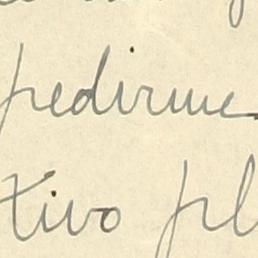 pedirme
tivo pl